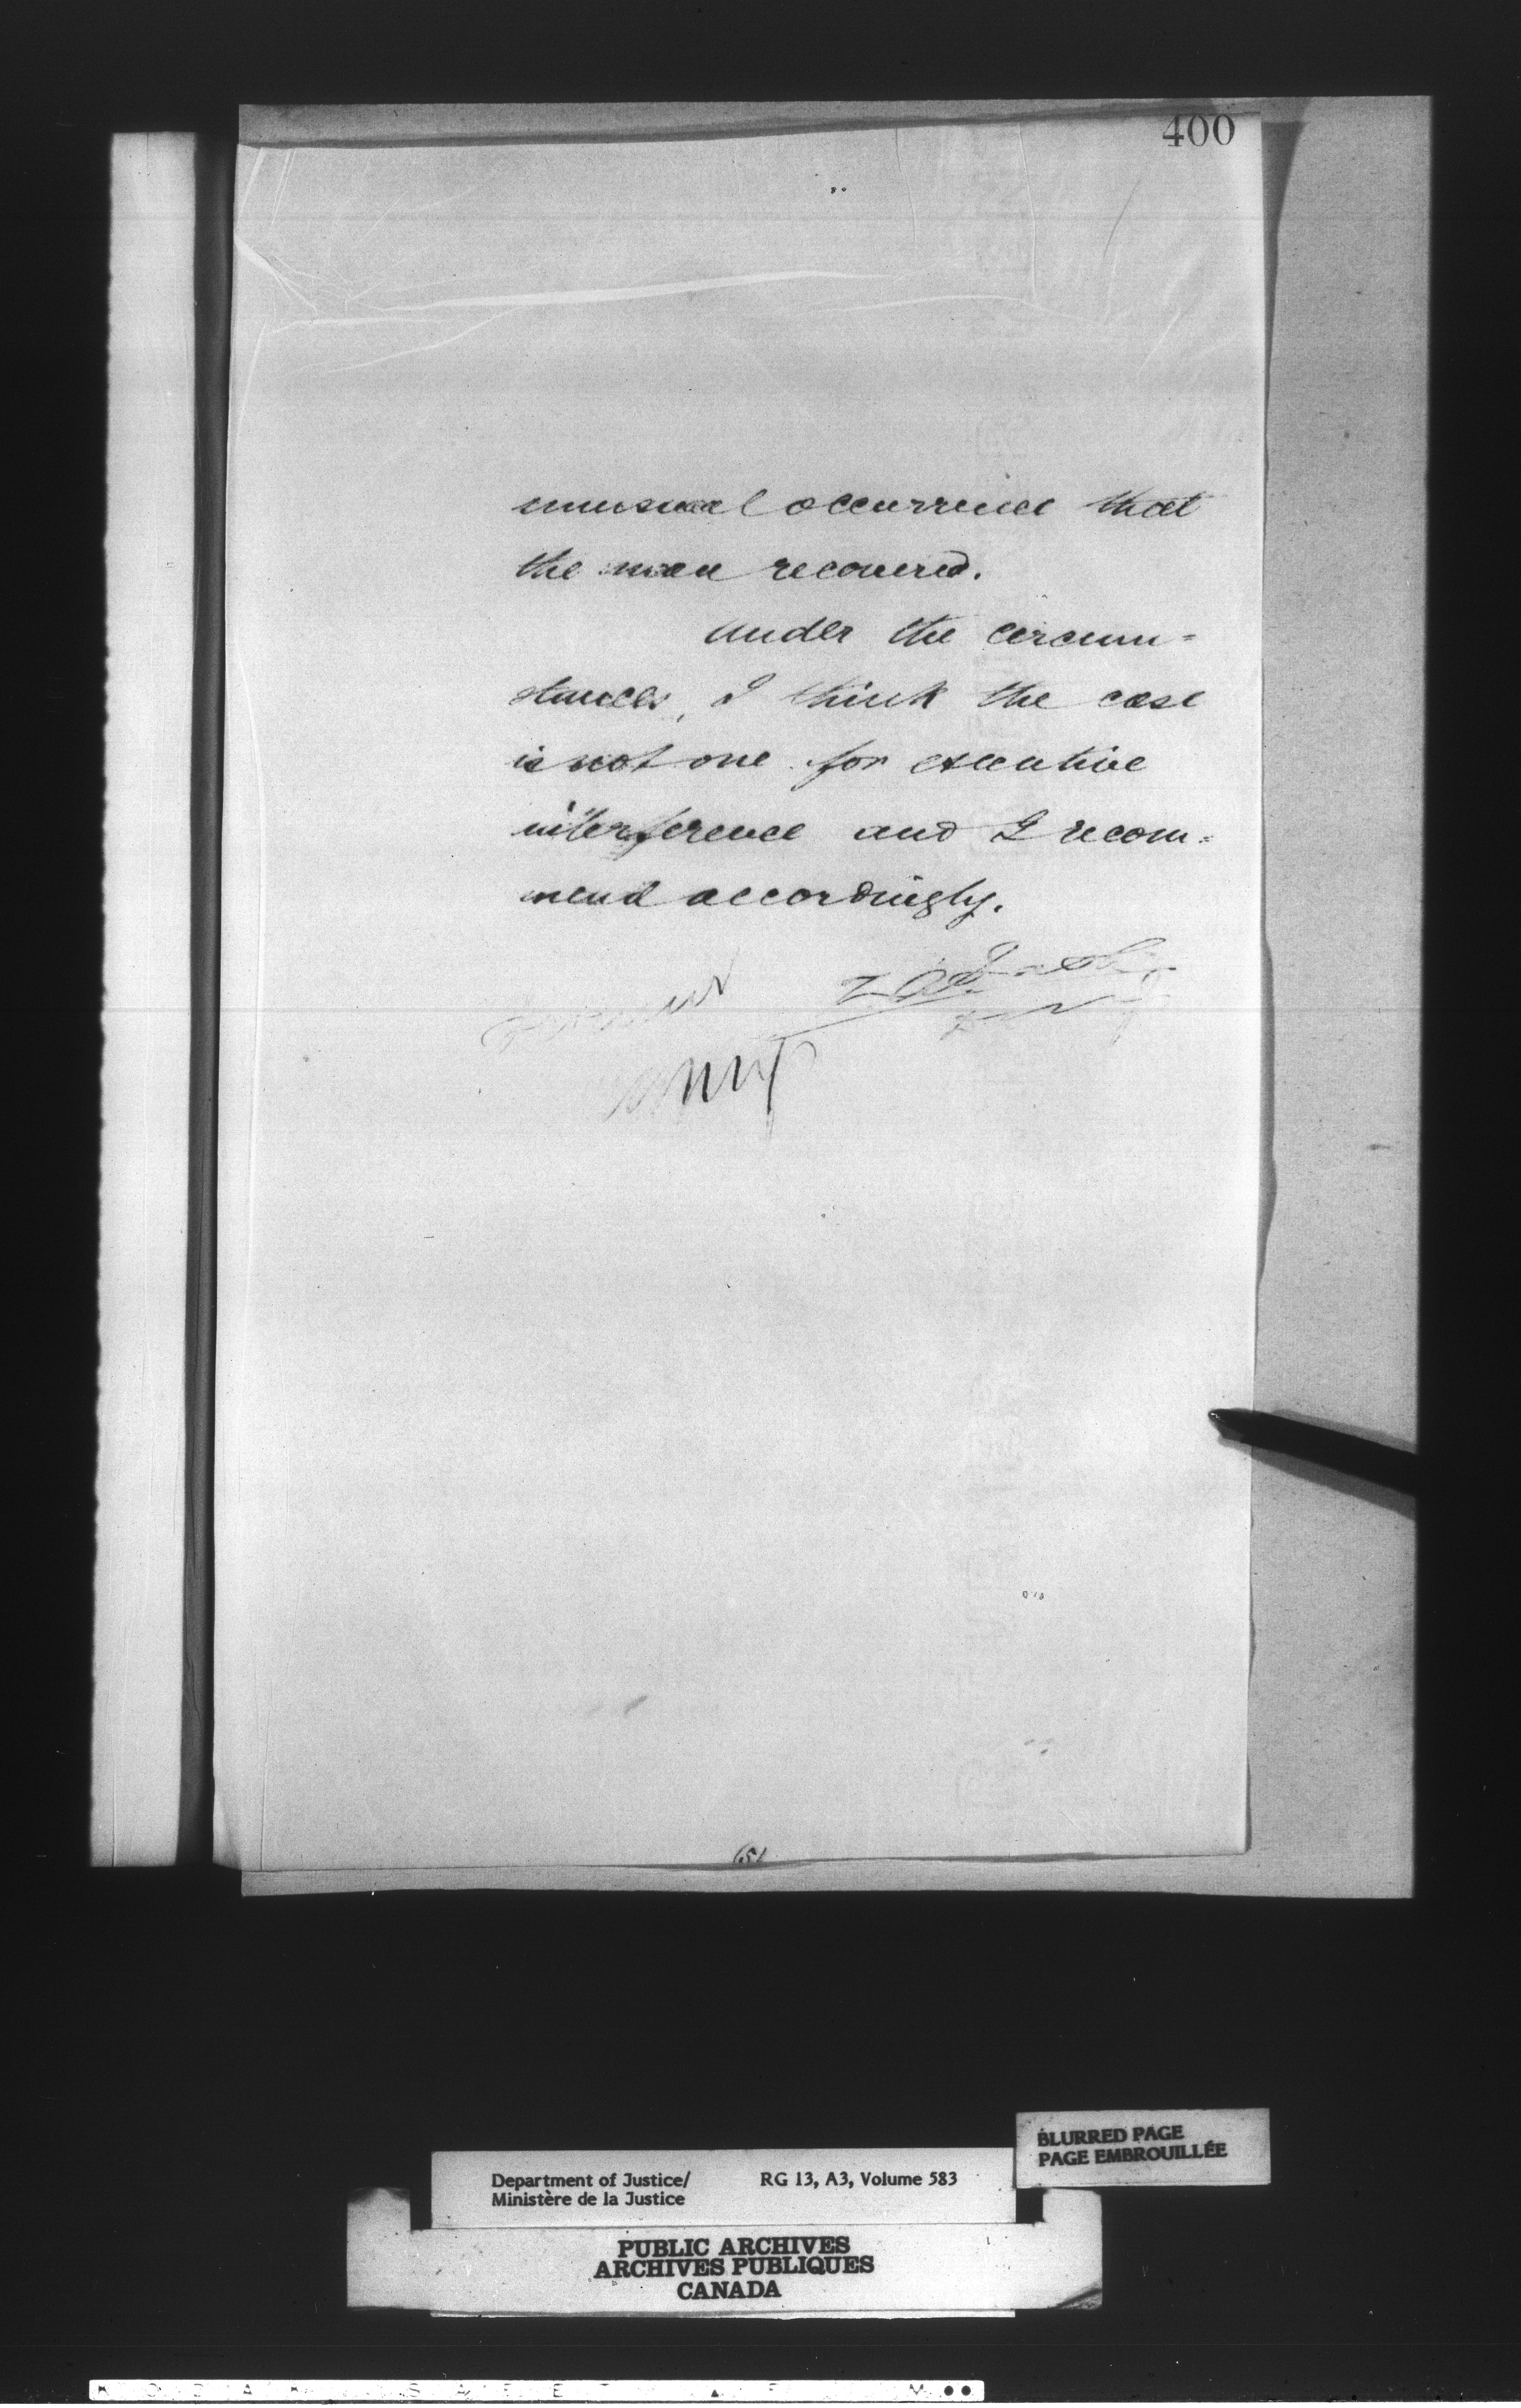 400
unusual occurrence that
the man recovered.
Under the circum=
stances, I think the case
is not one for executive
interference and I recom=
mend accordingly.
BLURRED PAGE
PAGE EMBROUILLÉE
Department of Justice/
Ministère de la Justice
RG 13, A3, Volume 583
PUBLIC ARCHIVES
ARCHIVES PUBLIQUES
CANADA